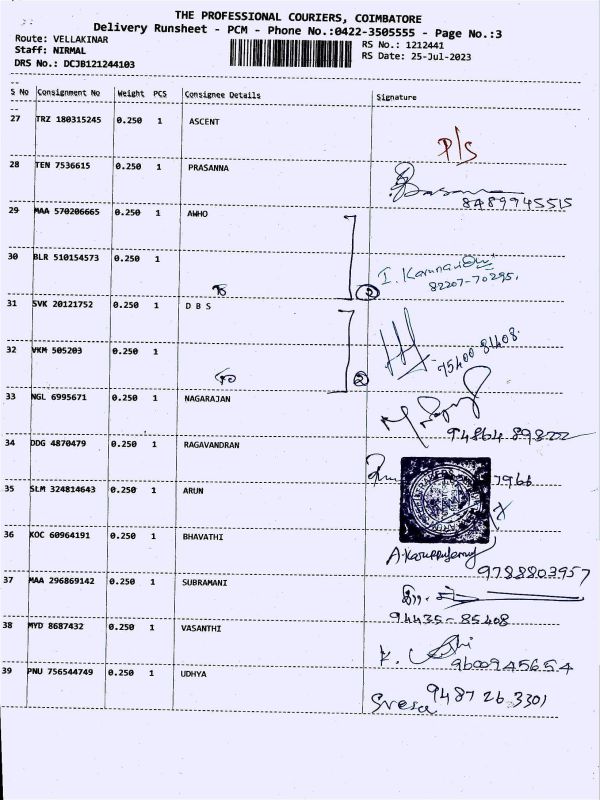 THE PROFESSIONAL COURIERS, COIMBATORE
Delivery Runsheet - PCM - Phone No.:0422-3505555 - Page No.:3
Route: VELLAKINAR
RS No.: 1212441
Staff: NIRMAL
RS Date: 25-Jul-2023
DRS No.: DCJB121244103
S No Consignment No Weight PCS Consignee Details Signature
27 TRZ 180315245 0.250 1 ASCENT
P/S
28 TEN 7536615 0.250 1 PRASANNA
8489945515
29 MAA 570206665 0.250 1 AWHO
30 BLR 510154573 0.250 1
82207-70295.
2
31 SVK 20121752 0.250 1 D B S
95400 81408.
32 VKM 505203 0.250 1
2
33 NGL 6995671 0.250 1 NAGARAJAN
94864 89822
34 DDG 4870479 0.250 1 RAGAVANDRAN
7966
35 SLM 324814643 0.250 1 ARUN
36 KOC 60964191 0.250 1 BHAVATHI
A.Karuppusamy
9788803957
37 MAA 296869142 0.250 1 SUBRAMANI
94435-85408
38 MYD 8687432 0.250 1 VASANTHI
9600945654
39 PNU 756544749 0.250 1 UDHYA
9487 26 3301